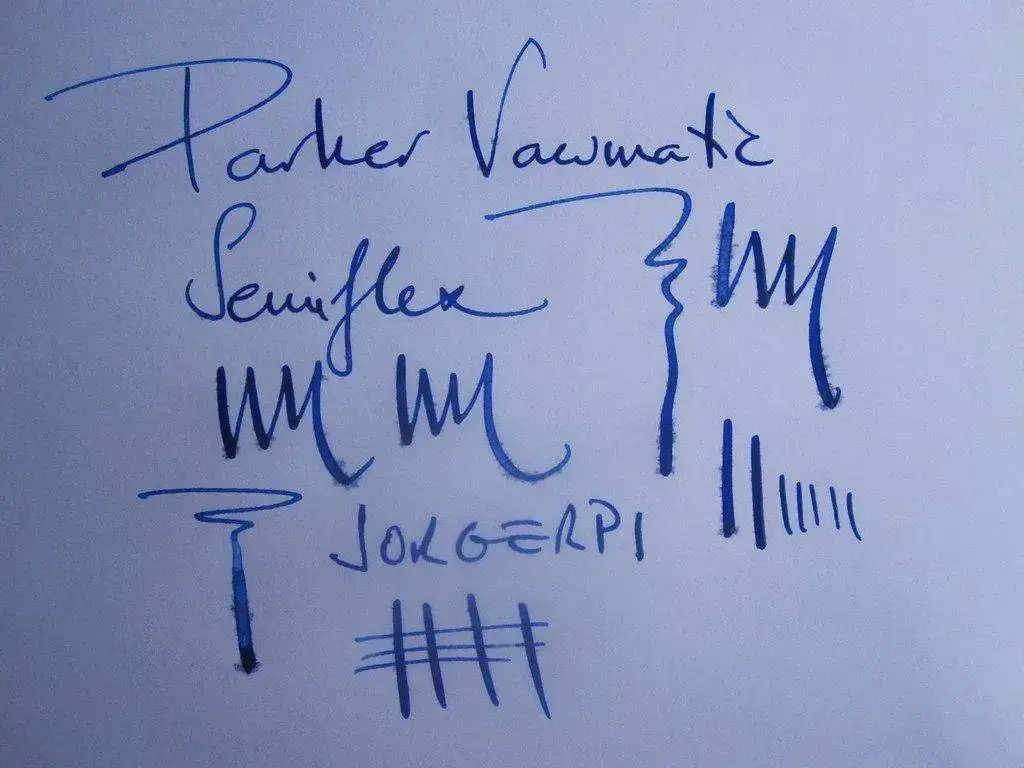 Parker Vacumatic
Semiflex
JORGERPI